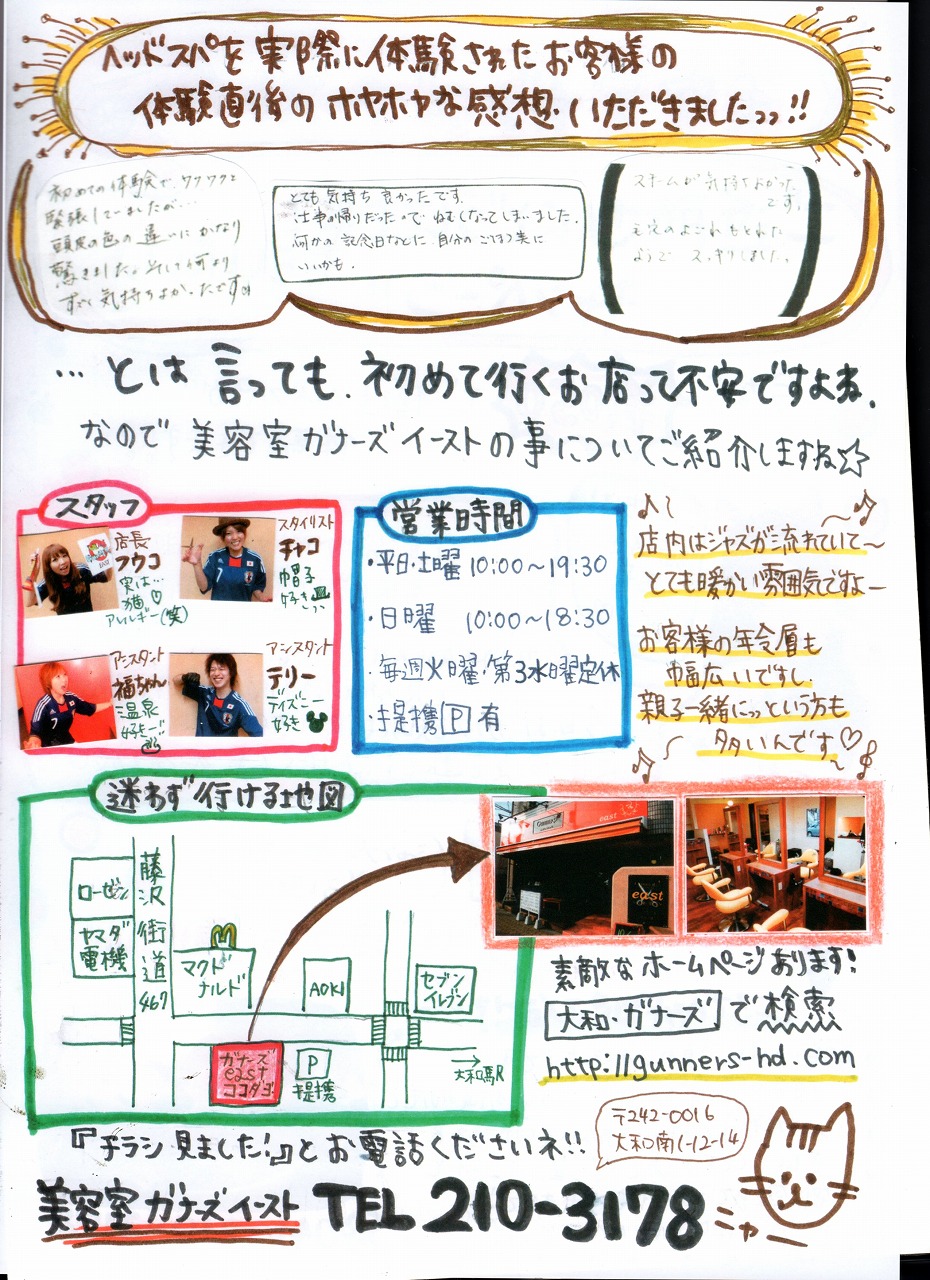 ヘッドスパを実際に体験されたお客様の
体験直後のホヤホヤな感想、いただきましたっっ!!
初めての体験で、ワクワクと
緊張していましたが…
頭皮の色の違いにかなり
驚きました。そして何より
すごく気持ちよかったです。
とても気持ち良かったです。
仕事の帰りだったのでねむくなってしまいました。
何かの記念日などに自分のごほう美に
いいかも。
スチームが気持ちよかった
です。
毛穴のよごれもとれた
ようで スッキリしました。
…とは言っても、初めて行くお店って不安ですよね。
なので美容室ガナーズイーストの事についてご紹介しますね☆
スタッフ
店長
フウコ
実は…
猫♡
アレルギー(笑)
スタイリスト
チャコ
帽子
好きっっ
アシスタント
福ちゃん
温泉
好きー!!
アシスタント
テリー
ディズニー
好き
営業時間
・平日・土曜 10:00〜19:30
・日曜 10:00〜18:30
・毎週火曜・第3水曜定休
・提携P有
店内はジャズが流れていて〜
とても暖かい雰囲気ですよー
お客様の年令層も
幅広いですし
親子一緒にっという方も
多いんです♡
迷わず行ける地図
ローゼン
ヤマダ
電機
藤沢街道467
マクド
ナルド
AOKI
セブン
イレブン
ガナーズ
east
ココダヨ
P
提携
→
大和駅
Gunners
east
east
素敵なホームページあります!
大和・ガナーズで検索
http://gunners-hd.com
『チラシ見ました!』とお電話くださいネ!!
〒242-0016
大和南1-12-14
美容室ガナーズイースト TEL 210-3178
ニャー